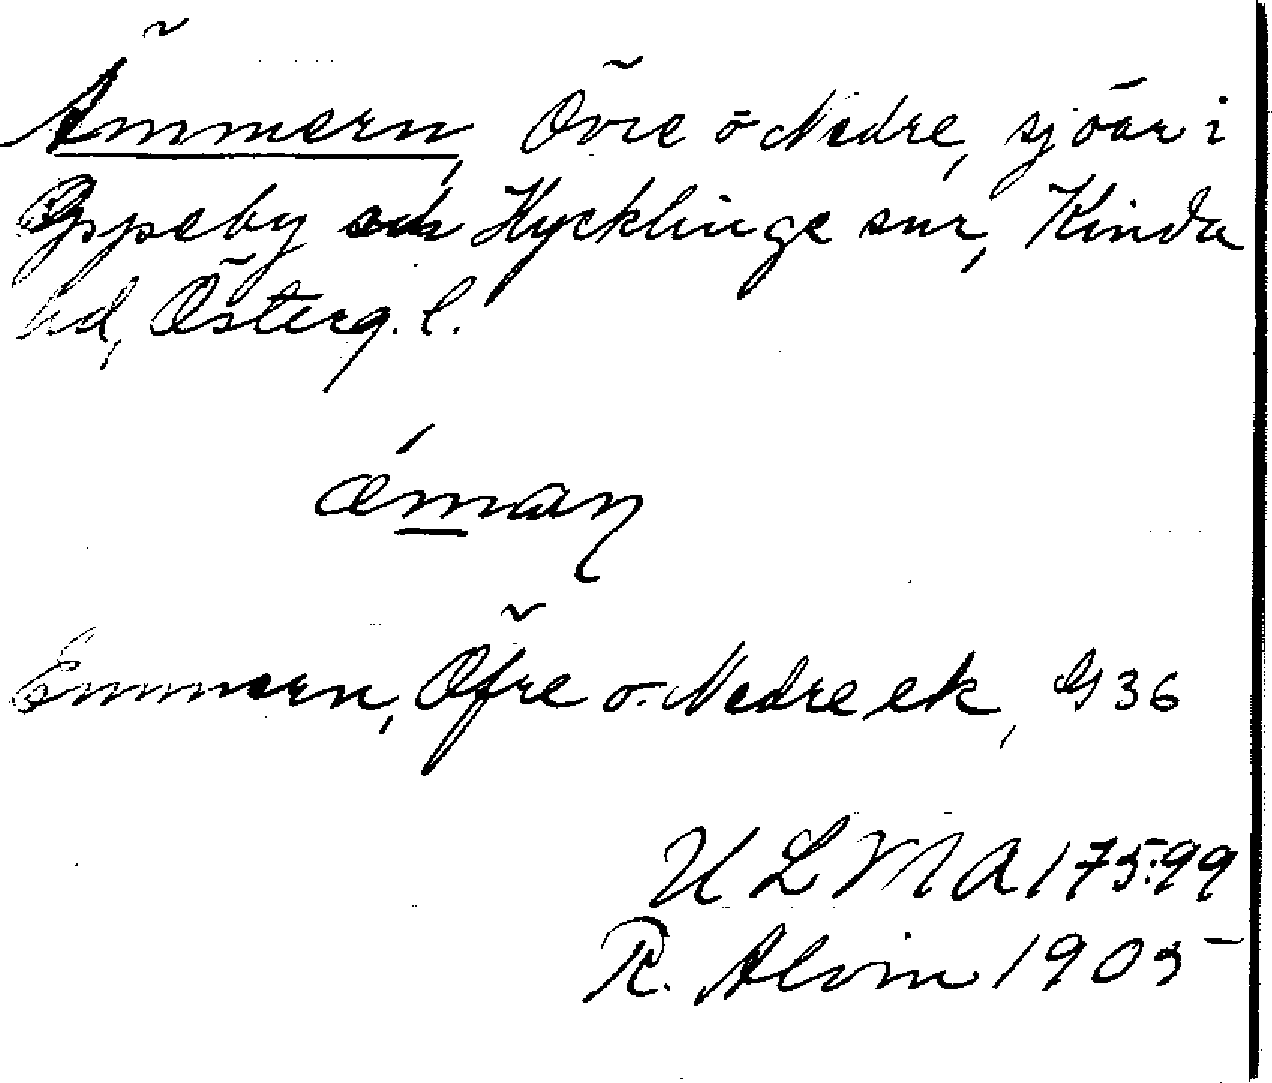 Ämmern, Övre o Nedre, sjöar i
Oppeby och Hycklinge snr, Kinda
hd, Österg. l.
ǽman
Emmern, Öfre o. Nedre ek, G 36
ULMA 175:99
R. Alvin 1905